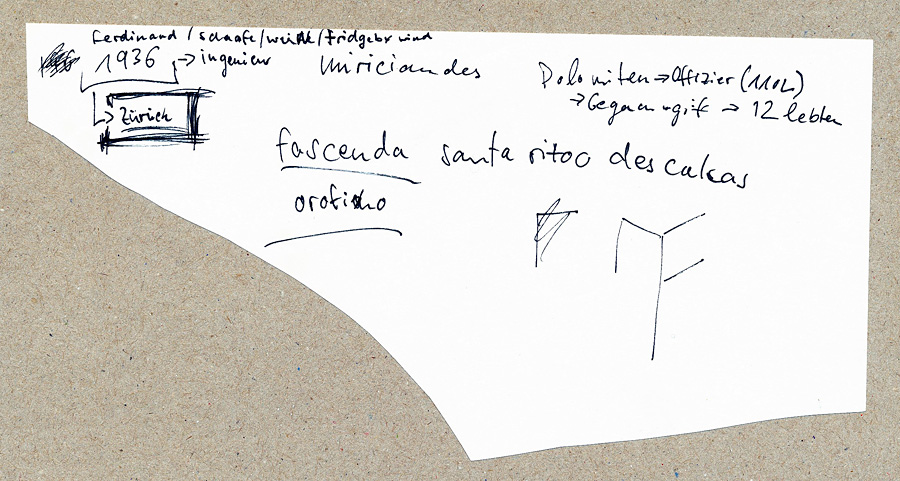 Ferdinand / schaafe / weiße / fridgebx wind
1936 → ingenieur
Zürich
Miriciandes
Dolomiten → Offizier (110L)
→ Gegenangift → 12 lebten
fascenda santa ritoo descalcas
orofinho